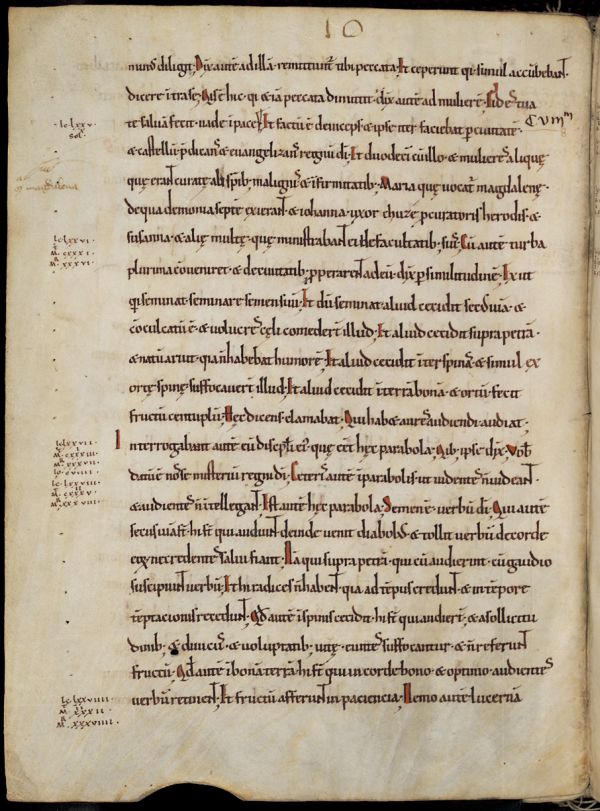 10
minus diligit. Dix̄ autē ad illā. remittunt᷑ tibi peccata. Et ceperunt qui simul accūbebant.
dicere ītra se. Quis ē hic. qui & iā peccata dimittit. dix̄ autē ad mulierē. Fides tua
te saluā fecit. uade ī pace. Et factū ē deinceps & ipse iter faciebat p ciuitatē.
& castellū. p̄dicans & euangelizans regnū dī. Et duodecī cū illo. & mulieres aliquę
quę erant curatę ab spīb; malignis & īfirmitatib;. Maria quę uocat᷑ magdalenę.
de qua demonia septē exierant. & iohanna. uxor chuzę pcuratoris herodis. &
susanna. & alię multę. quę ministrabant ei de facultatib; suis. Cū autē turba
plurima cōueniret. & de ciuitatib; pperarent ad eū. dix̄ p similitudinē. Exiit
qui seminat. seminare semen suū. Et dū seminat. aliud cecidit secus uiā. &
cōculcatū ē. & uolucres cęli comedert̄ illud. Et aliud cecidit supra petrā.
& natū aruit. quia n̄ habebat humorē. Et aliud cecidit īter spinas. & simul ex
ortę spinę suffocauert̄ illud. Et aliud cecidit ī terrā bonā. & ortū fecit
fructū centuplū. Hęc dicens clamabat. Qui hab& aures audiendi audiat.
Interrogabant autē eū discipli ei᷒. quę eēt hęc parabola. Quib; ipse dix̄. Vobis
datū ē nosse misteriū regni dī. Ceteris autē ī parabolis. ut uidentes n̄ uideant.
& audientes n̄ ītellegant. Est autē hęc parabola. Semen ē. uerbū dī. Qui autē
secus uiā st̄. hi st̄ qui audiunt. deinde uenit diabolus. & tollit uerbū de corde
eoȝ. ne credentes salui fiant. Nā qui supra petrā. qui cū audierint. cū gaudio
suscipiunt uerbū. Et hi radices n̄ habent. quia ad tēpus credunt. & in tēpore
tēptacionis recedunt. Qd̄ autē ī spinis cecidit. hi st̄ qui audiert̄. & a sollicitu
dinib;. & diuiciis. & uoluptatib; uitę. euntes suffocantur. & n̄ referunt
fructū. Qd̄ autē ī bonā terrā. hi st̄ qui in corde bono & optimo audientes
uerbū retinent. Et fructū afferunt in paciencia. Nemo autē lucernā
C. VIII
lc. lxxv.
sol.
magdalena
lc. lxxvi.
M. cxxxi.
R. xxxvi.
lc. lxxvii.
M. cxxxiii.
R. xxxvii.
lc. lxxviii.
M. cxxxv.
R. xxxviii.
lc. lxxviiii.
M. xxxii.
R. xxxviiii.